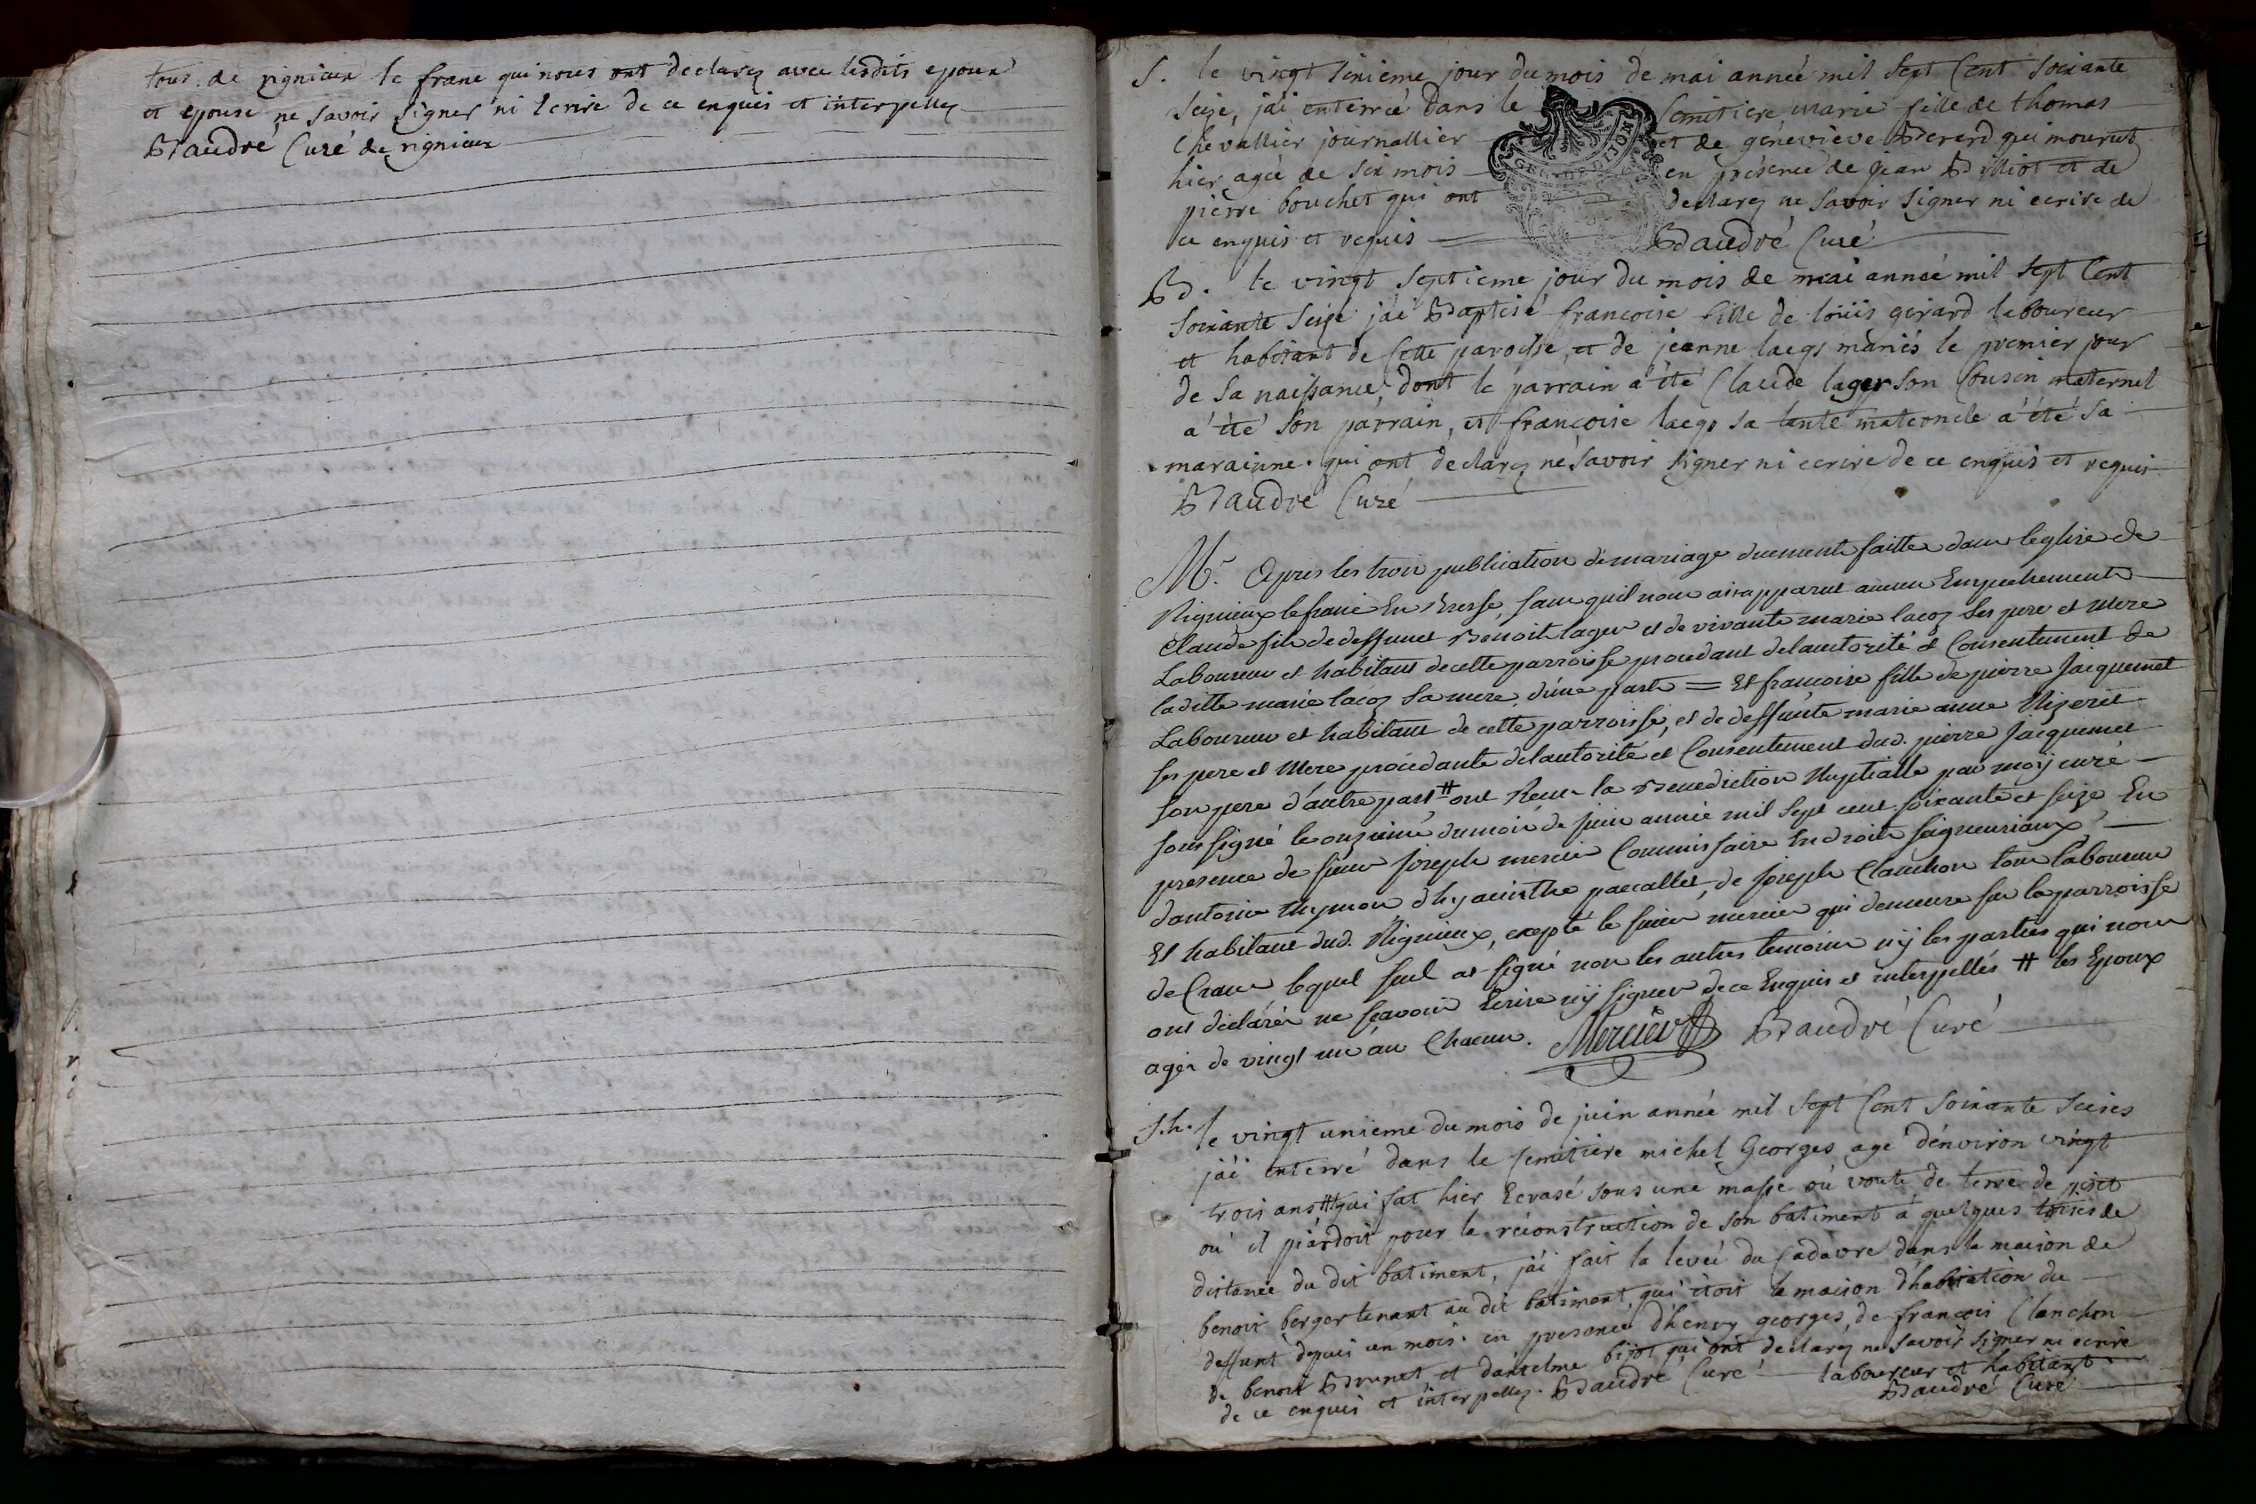 tous de rignieux le franc qui nous ont declarez avec lesdits epoux
et epouse ne savoir signer ni Ecrire de ce enquis et interpellez
Baudré Curé de rignieux
S. le vingt sixieme jour du mois de mai année mil sept Cent soixante
seize, j'ai enterrée dans le Cemitiere, marie fille de thomas
Chevallier journallier et de genevieve Berard qui mourut
hier agée de six mois en présence de jean Billiot et de
pierre bouchet qui ont declarez ne savoir signer ni ecrire de
ce enquis et requis Baudré Curé
GEN. DE DIJON
B. le vingt septieme jour du mois de mai année mil sept Cent
soixante seize j'ai Baptisé francoise fille de loüis gerard laboureur
et habitant de Cette paroisse, et de jeanne lacqs mariés le premier jour
de sa naissance, dont le parrain a été Claude lager son Cousin maternel
a été son parrain, et françoise lacqs sa tante maternele a été sa
marainne. qui ont declarez ne savoir signer ni ecrire de ce enquis et requis
Baudré Curé
Mr. Apres les trois publication de mariage duement faittes dans leglise de
Rignieux le franc En Bresse, sans quil nous ait apparut aucun Empechement
Claude fils de deffunct Benoit lager et de vivante marie lacoz ses pere et Mere
Laboureur et habitant de cette parroisse procedant de lautorité et Consentement de
laditte marie lacoz sa mere, d'une part = Et francoise fille de pierre Jacquemet
Laboureur et habitant de cette parroisse, et de deffunte marie anne Nizeret
ses pere et Mere procédante de lautorité et Consentement dud. pierre Jacquemet
son pere d'autre part # ont Recu la Benediction Nuptialle par moÿ curé
soussigné le onzieme du mois de juin année mil sept cent soixante et seize En
presence de sieur Joseph mercier Commissaire En droits seigneuriaux,
dantoine thymon d'hyacinthe pacallet, de Joseph Clanchon tous laboureur
Et habitant dud. Rignieux, exepté le sieur mercier qui demeure sur la parroisse
de Crans lequel seul at signé non les autres temoins nÿ les parties qui nous
ont déclarés ne scavoir Ecrire nÿ signer de ce Enquis et interpellés # les Epoux
agés de vingt un an Chacun. Mercier Baudré Curé
S.h. le vingt unieme du mois de juin année mil sept Cent soixante seizes
j'ai enterré dans le Cemitiere michel Georges agé d'environ vingt
trois ans # qui fut hier Ecrasé sous une masse où voute de terre de piset
où il piardoit pour la réconstruction de son batiment à quelques toises de
distance du dit batiment, j'ai fait la levée du Cadavre dans la maison de
benoit berger tenant au dit batiment qui étoit la maison d'habitation du
deffunt depuis un mois. en presence d'henry georges, de françois Clanchon
de benoit Brunet et d'anselme bijot qui ont declarez ne savoir signer ni ecrire
de ce enquis et interpellez. Baudré Curé laboureur et habitant
Baudré Curé